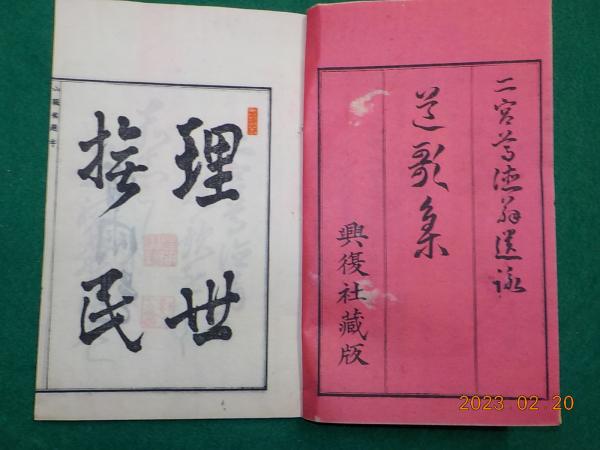 二宮尊徳翁遺詠
道歌集
興復社藏版
理世
撫民
2023 02 20